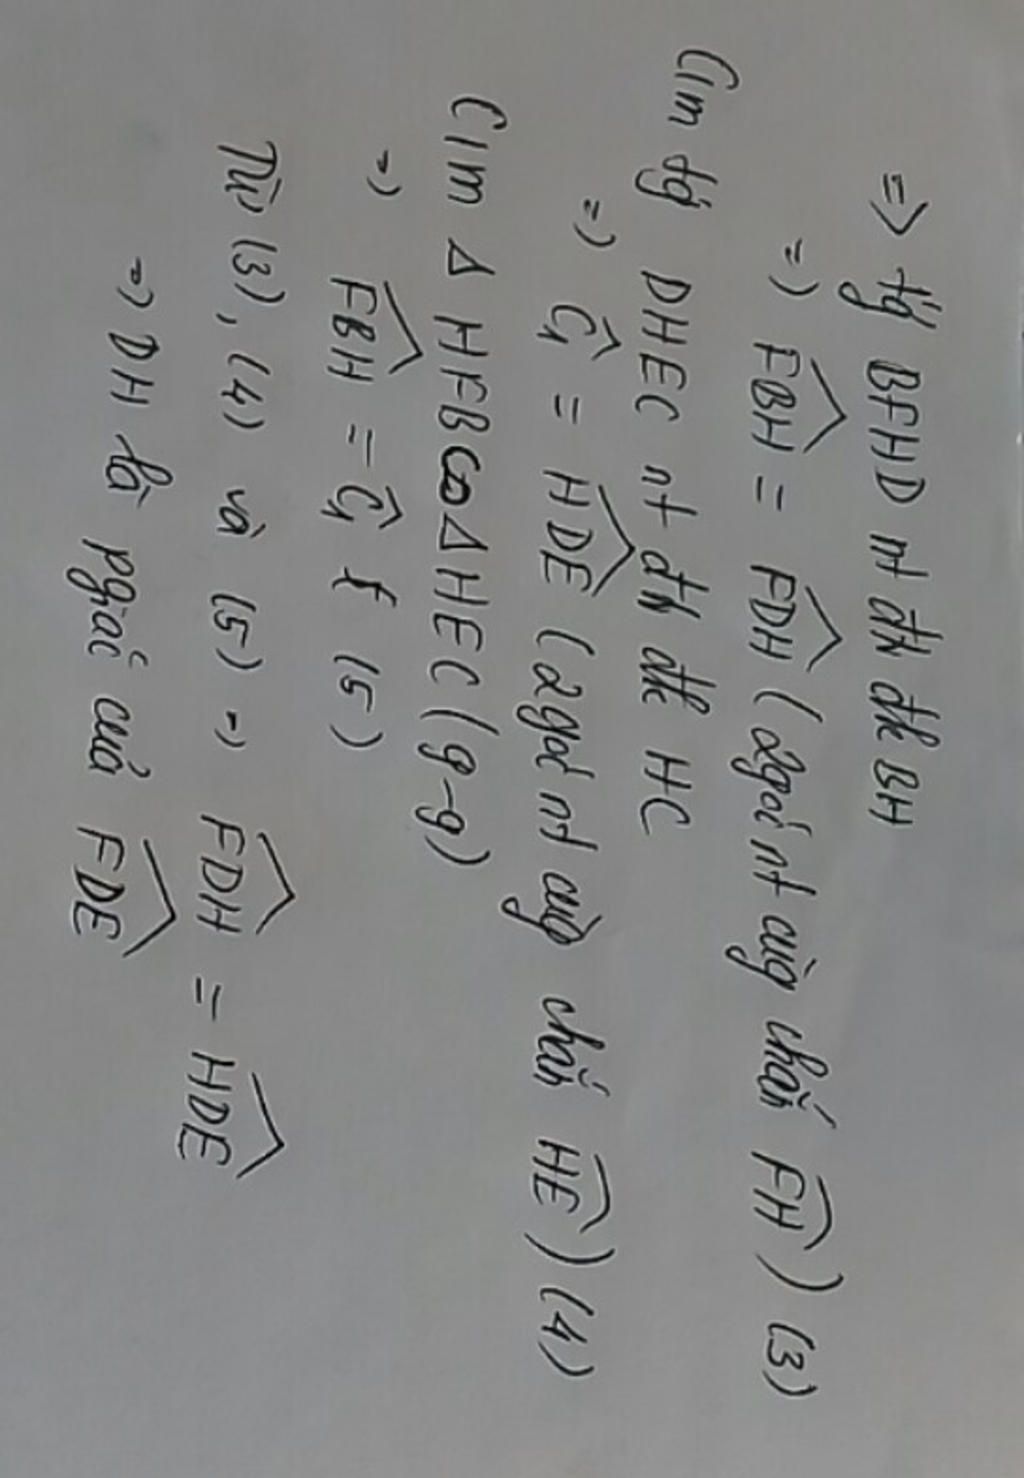 => tg BFHD nt đtr đk BH
=> FBH = FDH (2 góc nt cùg chắn FH) (3)
C/m tg DHEC nt đtr đk HC
=> Ĉ₁ = HDE (2 góc nt cùg chắn HE) (4)
C/m Δ HFB ∽ Δ HEC (g-g)
=> FBH = Ĉ₁ (5)
Từ (3), (4) và (5) => FDH = HDE
=> DH là pgiác của FDE